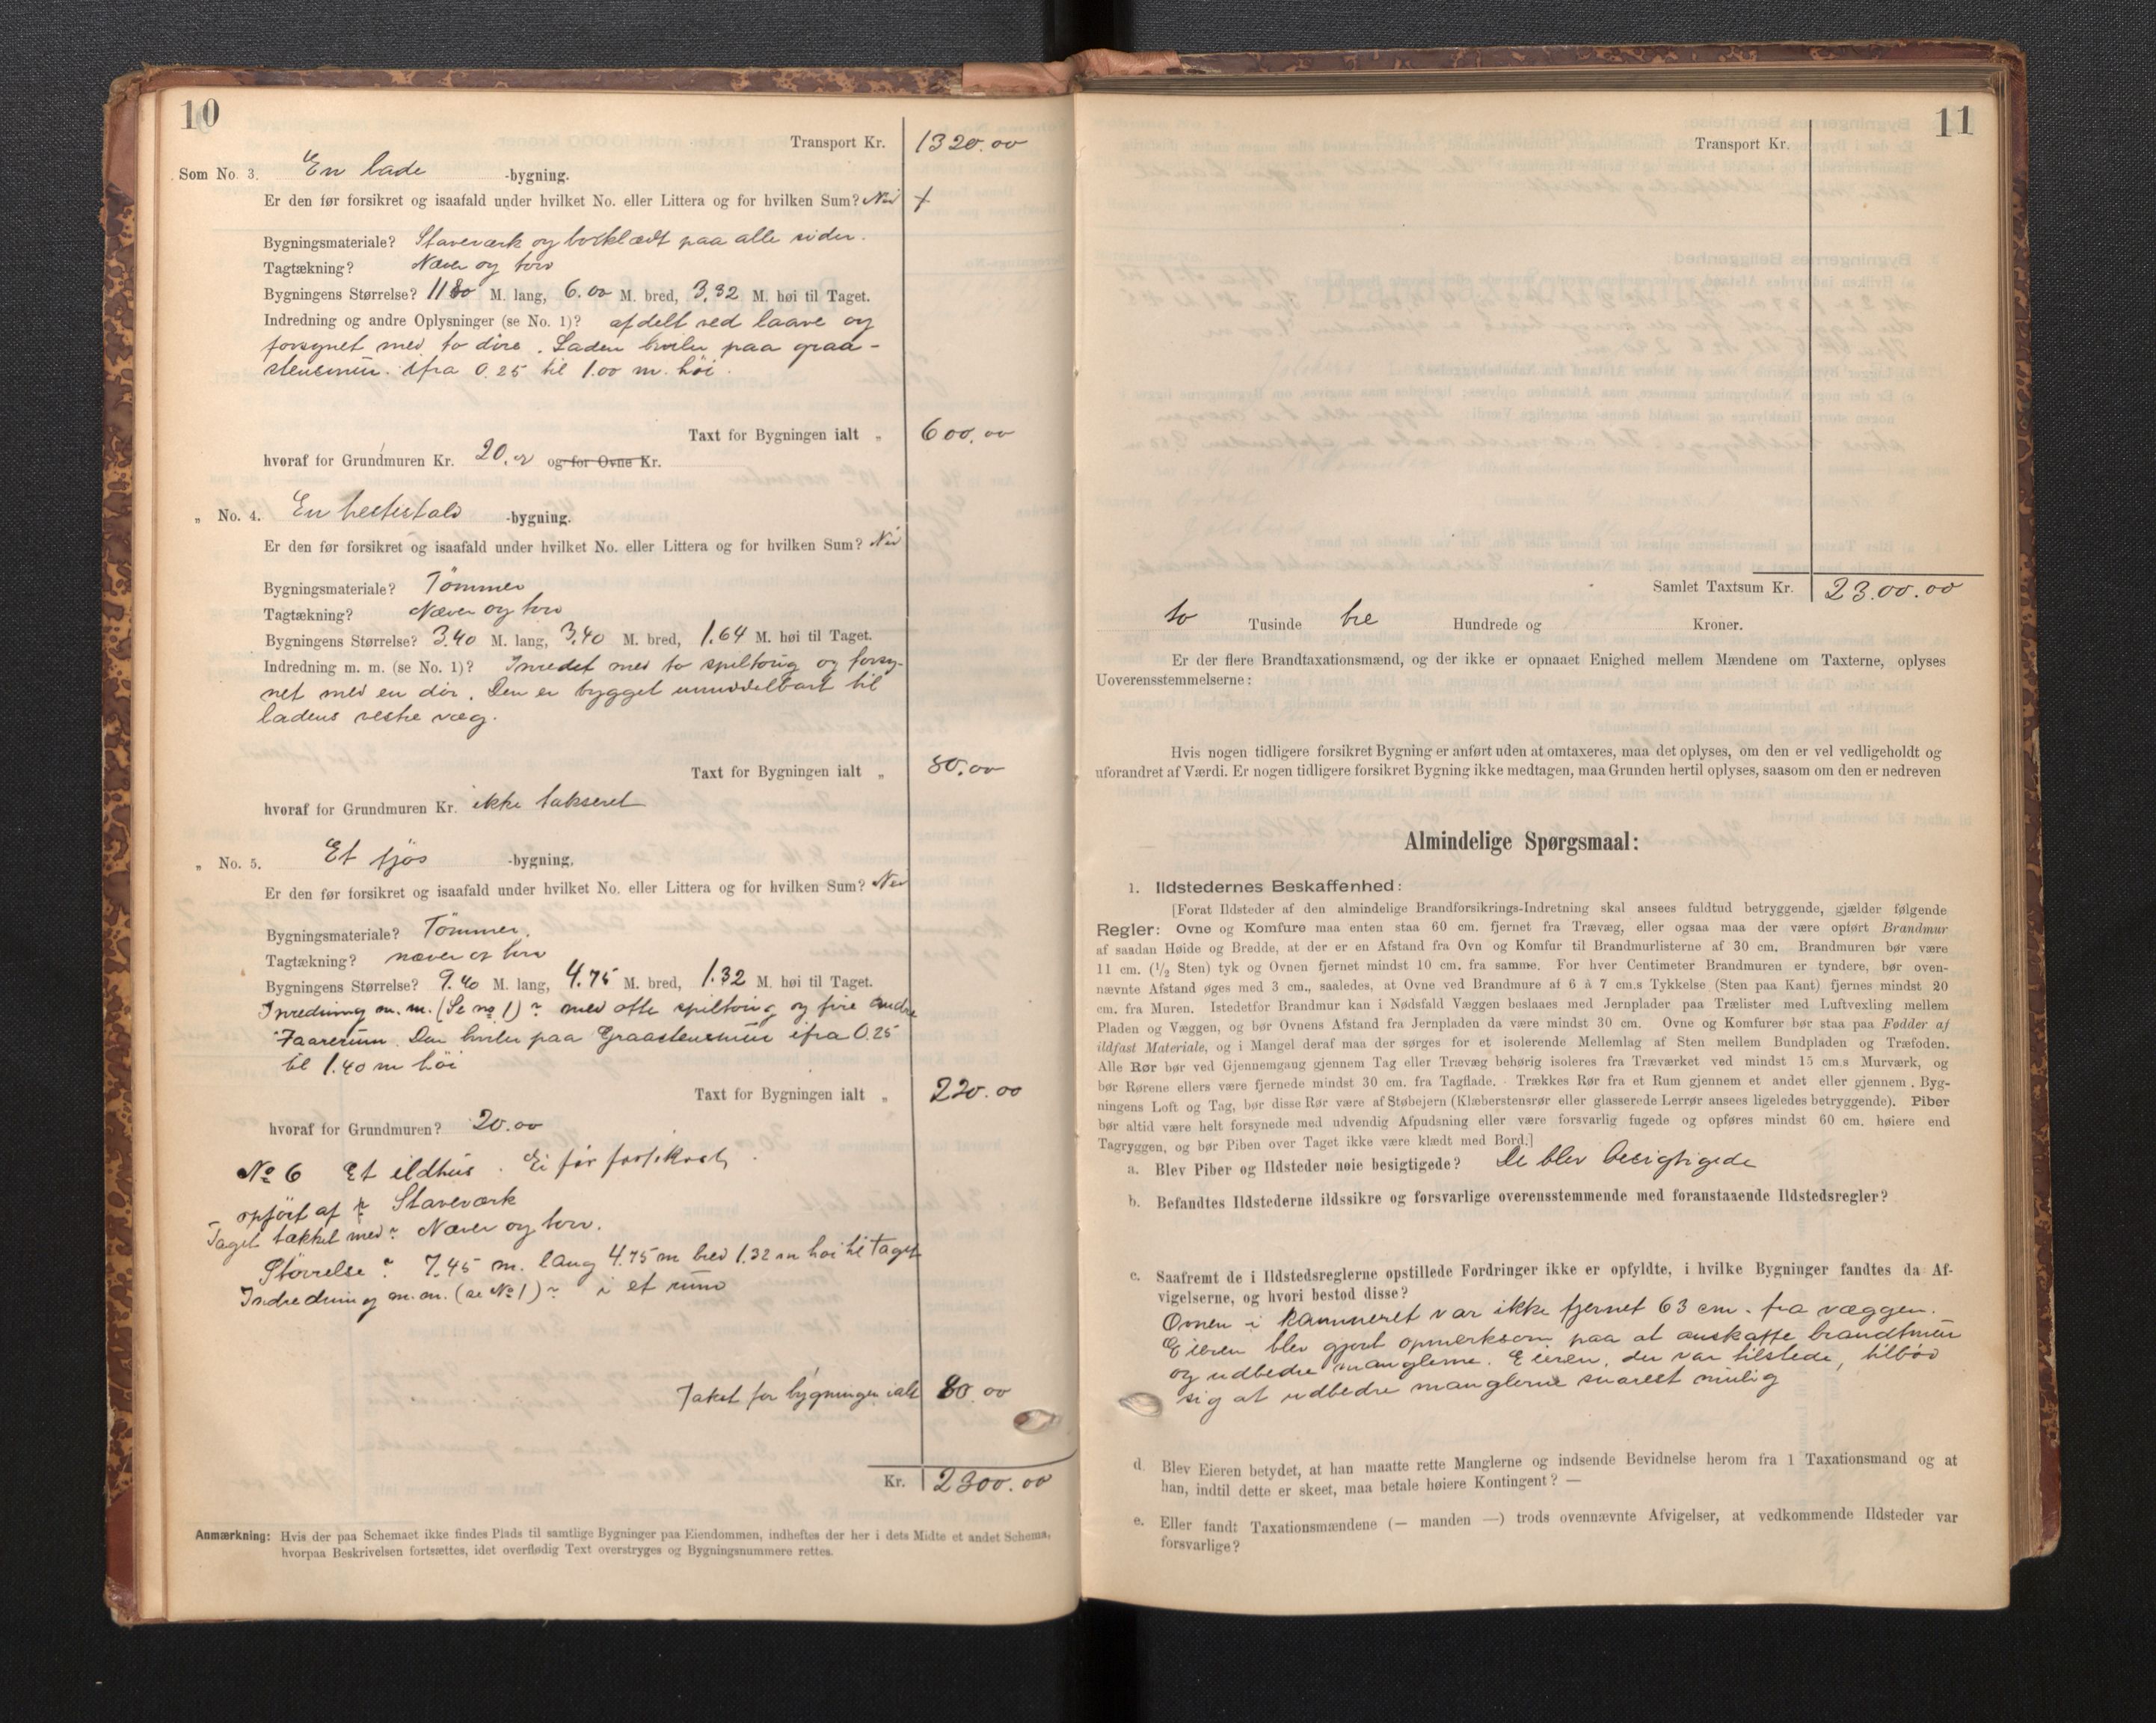 10
Transport Kr. 1320.00
Som No. 3. En lade -bygning.
Er den før forsikret og isaafald under hvilket No. eller Littera og for hvilken Sum? Nei
Bygningsmateriale? Staveværk og bordklædt paa alle sider.
Tagtækning? Næver og torv
Bygningens Størrelse? 11.80 M. lang, 6.00 M. bred, 3.32 M. høi til Taget.
Indredning og andre Oplysninger (se No. 1)? afdelt ved laave og
forsynet med to döre. Laden hviler paa graa-
stensmur ifra 0.25 til 1.00 m. höi.
Taxt for Bygningen ialt „ 600.00
hvoraf for Grundmuren Kr. 20.00 og for Ovne Kr.
„ No. 4. En hestestald -bygning.
Er den før forsikret og isaafald under hvilket No. eller Littera og for hvilken Sum? Nei
Bygningsmateriale? Tömmer
Tagtækning? Næver og torv
Bygningens Størrelse? 3.40 M. lang, 3.40 M. bred, 1.64 M. høi til Taget.
Indredning m. m. (se No. 1)? Inredet med to spiltoug og forsy-
net med en dör. Den er bygget umiddelbart til
ladens vestre væg.
Taxt for Bygningen ialt „ 80.00
hvoraf for Grundmuren Kr. ikke takseret
„ No. 5. Et fjös -bygning.
Er den før forsikret og isaafald under hvilket No. eller Littera og for hvilken Sum? Nei
Bygningsmateriale? Tömmer.
Tagtækning? næver og torv
Bygningens Størrelse? 9.40 M. lang, 4.75 M. bred, 1.32 M. høi til Taget.
Inredning m. m. (Se no 1)? med otte spiltoug og fire andre
Faarerum. Den hviler paa Graastensmur ifra 0.25
til 1.40 m höi
Taxt for Bygningen ialt „ 220.00
hvoraf for Grundmuren? 20.00
No 6 Et ildhus. Ei för forsikret.
opfört af? Staveværk
Taget tækket med? Næver og torv.
Störrelse? 7.45 m. lang 4.75 m bred 1.32 m höi til Taget
Indredning m. m. (se No 1)? i et rum
Takst for bygningen ialt 80.00
Kr. 2300.00
Anmærkning: Hvis der paa Schemaet ikke findes Plads til samtlige Bygninger paa Eiendommen, indheftes der her i dets Midte et andet Schema,
hvorpaa Beskrivelsen fortsættes, idet overflødig Text overstryges og Bygningsnummere rettes.
11
Transport Kr.
Samlet Taxtsum Kr. 23.00.00
to Tusinde tre Hundrede og Kroner.
Er der flere Brandtaxationsmænd, og der ikke er opnaaet Enighed mellem Mændene om Taxterne, oplyses
Uoverensstemmelserne:
Hvis nogen tidligere forsikret Bygning er anført uden at omtaxeres, maa det oplyses, om den er vel vedligeholdt og
uforandret af Værdi. Er nogen tidligere forsikret Bygning ikke medtagen, maa Grunden hertil oplyses, saasom om den er nedreven
Almindelige Spørgsmaal:
1. Ildstedernes Beskaffenhed:
[Forat Ildsteder af den almindelige Brandforsikrings-Indretning skal ansees fuldtud betryggende, gjælder følgende
Regler: Ovne og Komfure maa enten staa 60 cm. fjernet fra Trævæg, eller ogsaa maa der være opført Brandmur
af saadan Høide og Bredde, at der er en Afstand fra Ovn og Komfur til Brandmurlisterne af 30 cm. Brandmuren bør være
11 cm. (1/2 Sten) tyk og Ovnen fjernet mindst 10 cm. fra samme. For hver Centimeter Brandmuren er tyndere, bør oven-
nævnte Afstand øges med 3 cm., saaledes, at Ovne ved Brandmure af 6 à 7 cm.s Tykkelse (Sten paa Kant) fjernes mindst 20
cm. fra Muren. Istedetfor Brandmur kan i Nødsfald Væggen beslaaes med Jernplader paa Trælister med Luftvexling mellem
Pladen og Væggen, og bør Ovnens Afstand fra Jernpladen da være mindst 30 cm. Ovne og Komfurer bør staa paa Fødder af
ildfast Materiale, og i Mangel deraf maa der sørges for et isolerende Mellemlag af Sten mellem Bundpladen og Træfoden.
Alle Rør bør ved Gjennemgang gjennem Tag eller Trævæg behørig isoleres fra Træværket ved mindst 15 cm.s Murværk, og
bør Rørene ellers være fjernede mindst 30 cm. fra Tagflade. Trækkes Rør fra et Rum gjennem et andet eller gjennem Byg-
ningens Loft og Tag, bør disse Rør være af Støbejern (Klæberstensrør eller glasserede Lerrør ansees ligeledes betryggende). Piber
bør altid være helt forsynede med udvendig Afpudsning eller være forsvarlig fugede og opføres mindst 60 cm. høiere end
Tagryggen, og bør Piben over Taget ikke være klædt med Bord.]
a. Blev Piber og Ildsteder nøie besigtigede? De blev besigtigede
b. Befandtes Ildstederne ildssikre og forsvarlige overensstemmende med foranstaaende Ildstedsregler?
c. Saafremt de i Ildstedsreglerne opstillede Fordringer ikke er opfyldte, i hvilke Bygninger fandtes da Af-
vigelserne, og hvori bestod disse?
Ovnen i kammeret var ikke fjernet 63 cm. fra væggen.
Eieren blev gjort opmerksom paa at anskaffe brandtmur
og udbedre manglerne. Eieren, der var tilstede, tilbød
sig at udbedre manglerne snarest mulig
d. Blev Eieren betydet, at han maatte rette Manglerne og indsende Bevidnelse herom fra 1 Taxationsmand og at
han, indtil dette er skeet, maa betale høiere Kontingent? —
e. Eller fandt Taxationsmændene (— manden —) trods ovennævnte Afvigelser, at vedkommende Ildsteder var
forsvarlige?